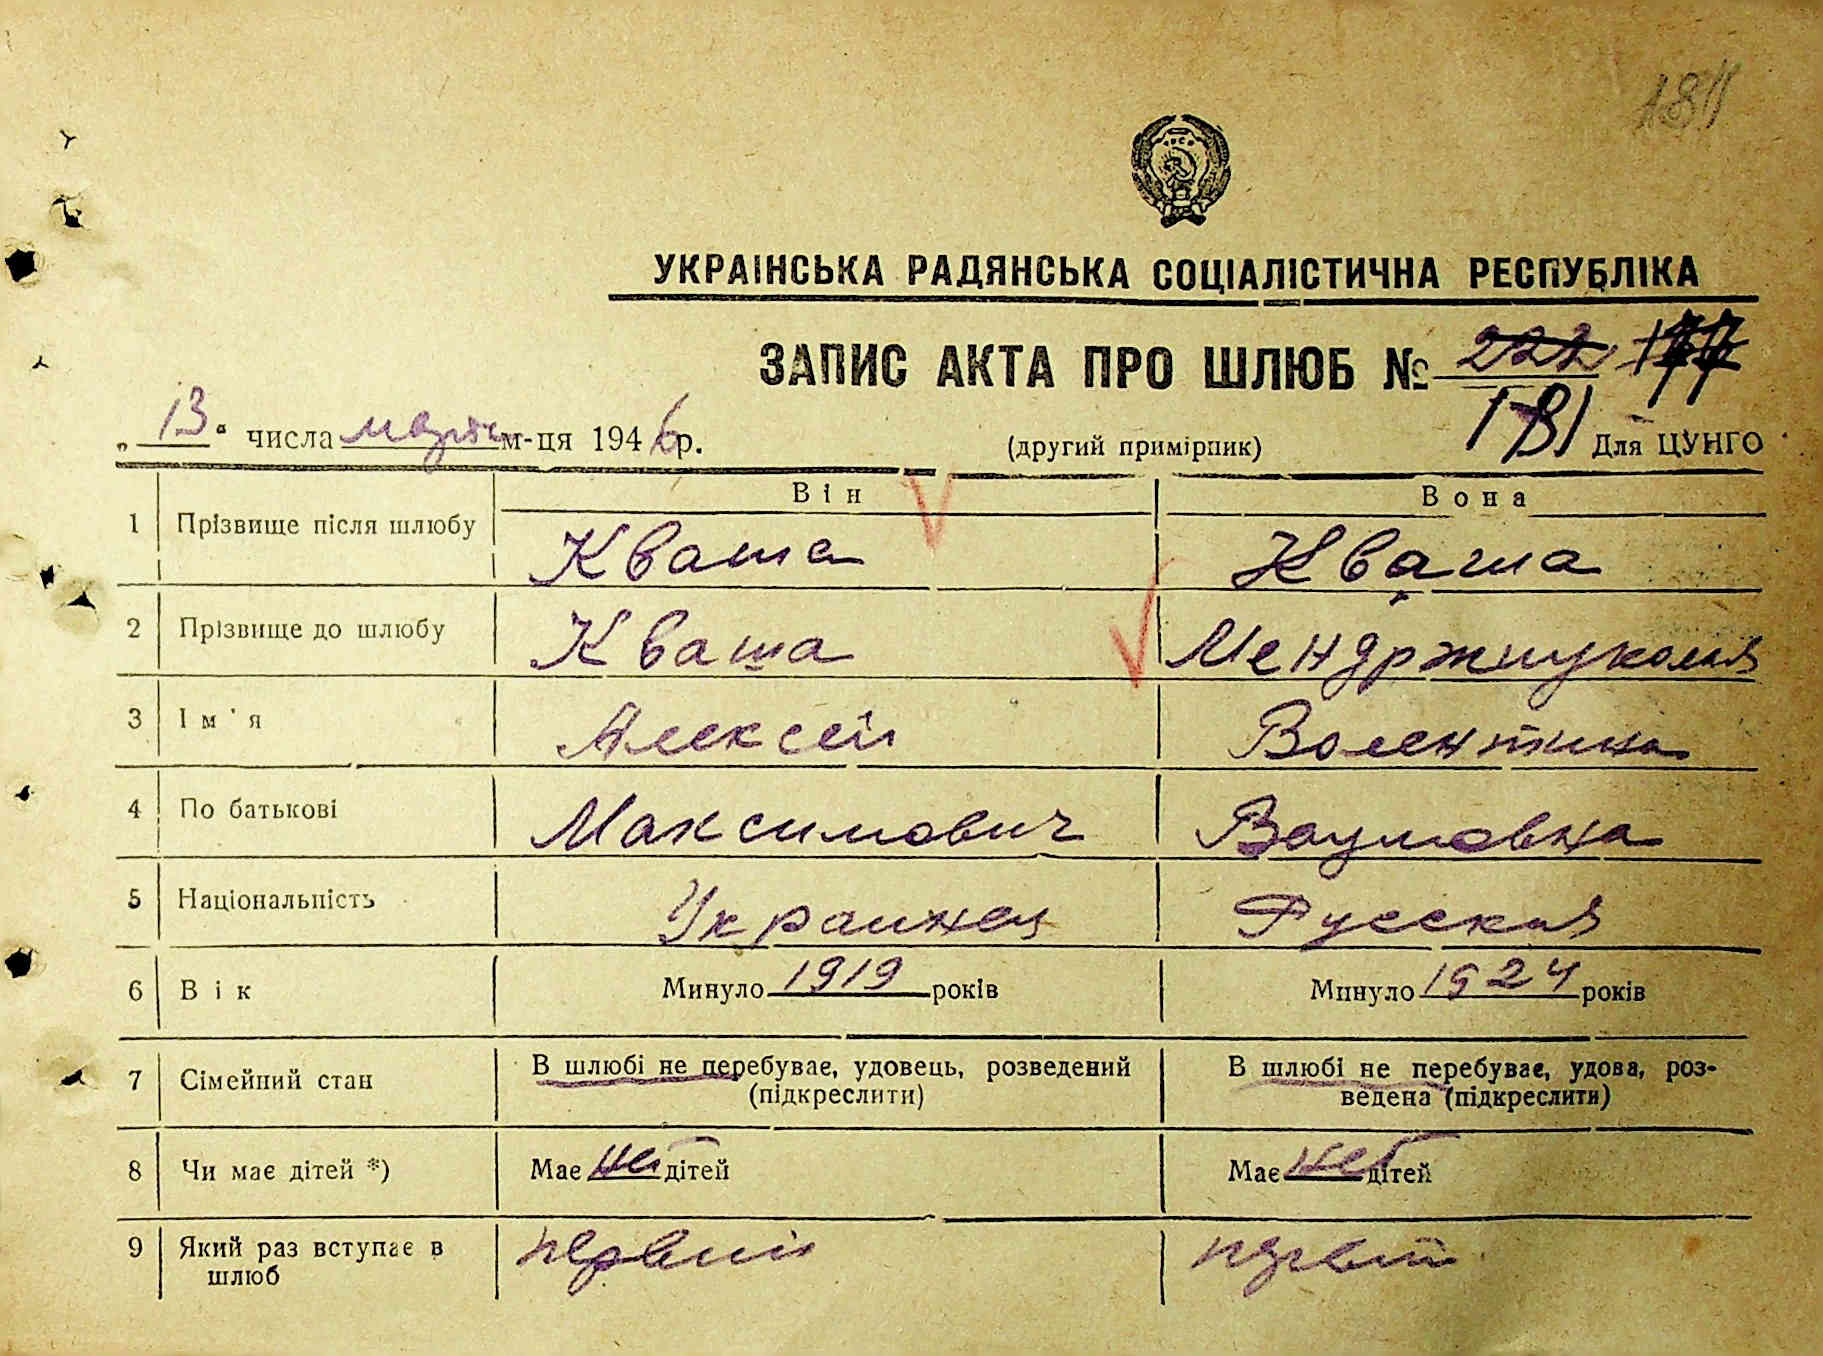 181
УКРАІНСЬКА РАДЯНСЬКА СОЦІАЛІСТИЧНА РЕСПУБЛІКА
ЗАПИС АКТА ПРО ШЛЮБ № 222 177
181
„13“ числа марта м-ця 1946 р. (другий примірник) Для ЦУНГО
Він Вона
1 Прізвище після шлюбу Кваша Кваша
2 Прізвище до шлюбу Кваша
3 Ім'я Алексей Волентина
4 По батькові Максимович Ваумовна
5 Національність Украинец Русская
6 Вік Минуло 1919 років Минуло 1924 років
7 Сімейний стан В шлюбі не перебуває, удовець, розведений В шлюбі не перебуває, удова, роз-
(підкреслити) ведена (підкреслити)
8 Чи має дітей *) Має нет дітей Має нет дітей
9 Який раз вступає в первий
шлюб